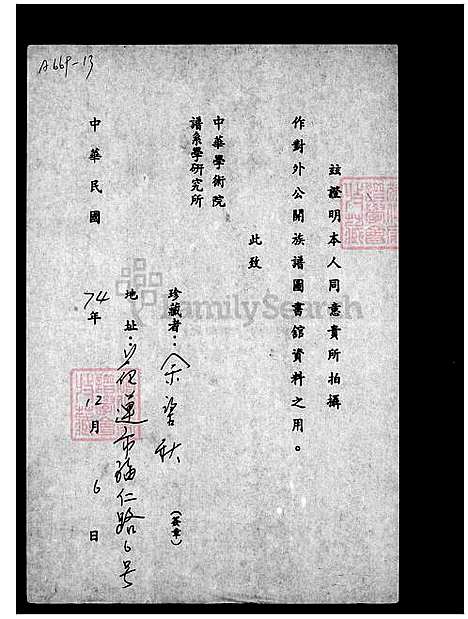 A669-13
玆證明本人同意貴所拍攝
作對外公開族譜圖書館資料之用。
此致
中華學術院
譜系學研究所
珍藏者：余
秋
(簽章)
地址：花蓮市
仁路6号
中華民國74年12月6日
FamilySearch